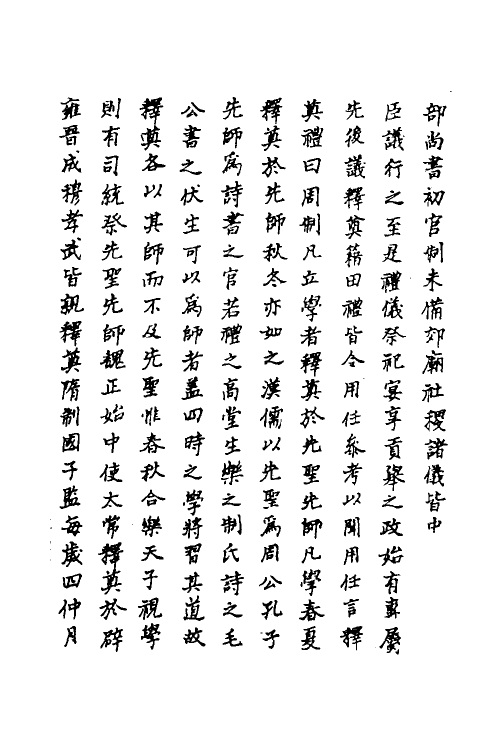 部尚書初官制未備郊廟社稷諸儀皆中
臣議行之至是禮儀祭祀宴享貢舉之政始有專屬
先後議釋奠籍田禮皆令用任參考以聞用任言釋
奠禮曰周制凡立學者釋奠於先聖先師凡學春夏
釋奠於先師秋冬亦如之漢儒以先聖為周公孔子
先師為詩書之官若禮之高堂生樂之制氏詩之毛
公書之伏生可以為師者蓋四時之學將習其道故
釋奠各以其師而不及先聖惟春秋合樂天子視學
則有司統祭先聖先師魏正始中使太常釋奠於辟
雍晉成穆孝武皆親釋奠隋制國子監每歲四仲月